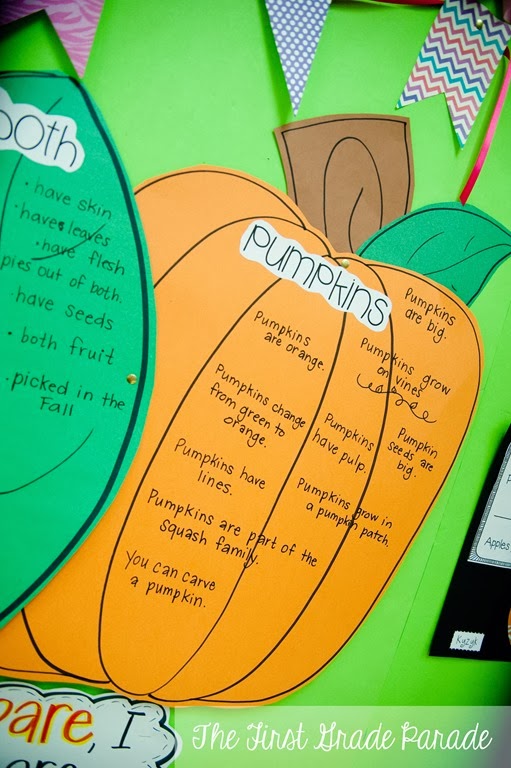 both
• have skin
• have leaves
• have flesh
pies out of both.
• have seeds
• both fruit
• picked in the
Fall
Pumpkins
Pumpkins
are big.
Pumpkins
are orange.
Pumpkins grow
on vines
Pumpkins change
from green to
orange.
Pumpkins
have pulp.
Pumpkin
seeds are
big.
Pumpkins have
lines.
Pumpkins grow in
a pumpkin patch.
Pumpkins are part of the
squash family.
You can carve
a pumpkin.
Apples
pare, I
are
The First Grade Parade